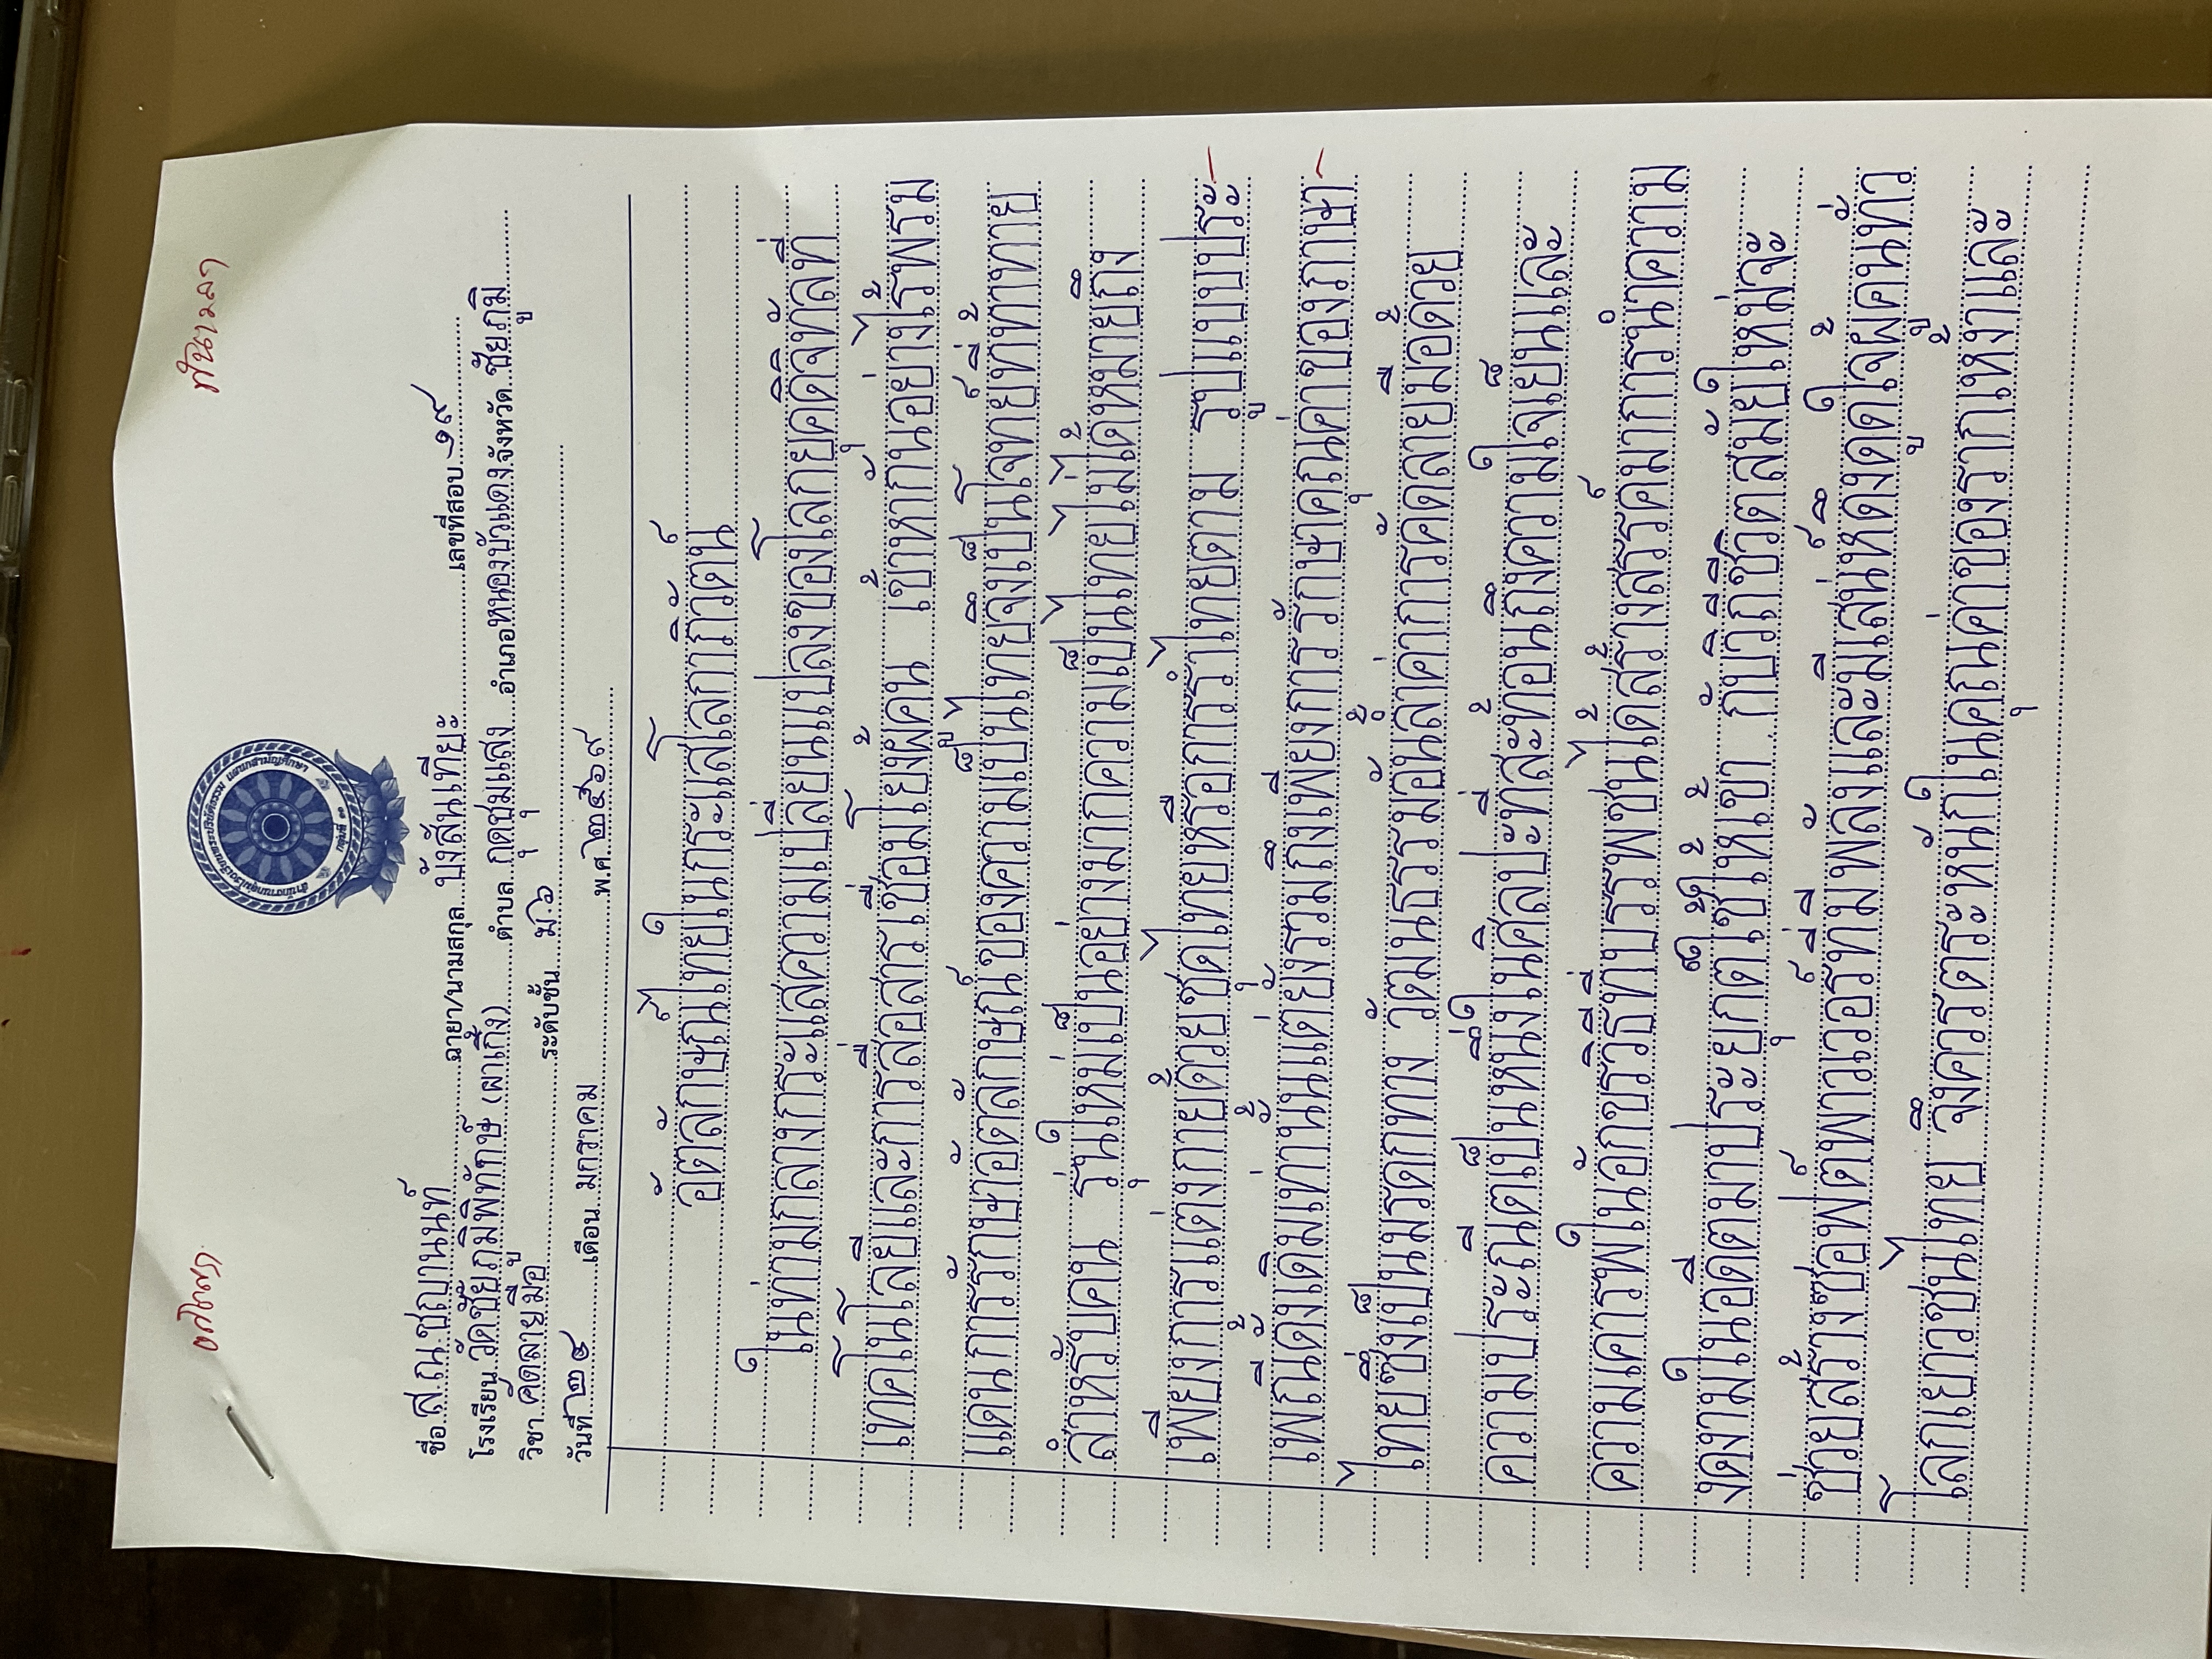 ทันเวลา
ครบถ้วน
สำนักงานกลุ่มโรงเรียนพระปริยัติธรรม แผนกสามัญศึกษา
กลุ่มที่ ๑๑
ชื่อ ส.ณ.ชญานนท์ ฉายา/นามสกุล บังสันเทียะ เลขที่สอบ ๑๙
โรงเรียน วัดชัยภูมิพิทักษ์ (ผาเกิ้ง) ตำบล กุดชุมแสง อำเภอ หนองบัวแดง จังหวัด ชัยภูมิ
วิชา คัดลายมือ ระดับชั้น ม.๖
วันที่ ๒๔ เดือน มกราคม พ.ศ ๒๕๖๙
อัตลักษณ์ไทยในกระแสโลกาภิวัตน์
ในท่ามกลางกระแสความเปลี่ยนแปลงของโลกยุคดิจิทัลที่
เทคโนโลยีและการสื่อสารเชื่อมโยงผู้คน เข้าหากันอย่างไร้พรม
แดน การรักษาอัตลักษณ์ของความเป็นไทยจึงเป็นโจทย์ที่ท้าทาย
สำหรับคน รุ่นใหม่เป็นอย่างมาก ความเป็นไทยไม่ได้หมายถึง
เพียงการแต่งกายด้วยชุดไทยหรือการรำไทยตาม รูปแบบประ-
เพณีดั้งเดิมเท่านั้นแต่ยังรวมถึงเพียงการรักษาคุณค่าของภาษา-
ไทยซึ่งเป็นมรดกทาง วัฒนธรรมอันล้ำค่า การคัดลายมือด้วย
ความประณีตเป็นหนึ่งในศิลปะที่สะท้อนถึงความใจเย็นและ
ความเคารพในอักขรวิธีที่บรรพชนได้สร้างสรรค์มา การนำความ
งดงามในอดีตมาประยุกต์ใช้ให้เข้า กับวิถีชีวิตสมัยใหม่จะ
ช่วยสร้างซอฟต์พาวเวอร์ที่มีพลังและมีเสน่ห์ดึงดูดใจผู้คนทั่ว
โลกเยาวชนไทย จึงควรตระหนักในคุณค่าของรากเหง้าและ